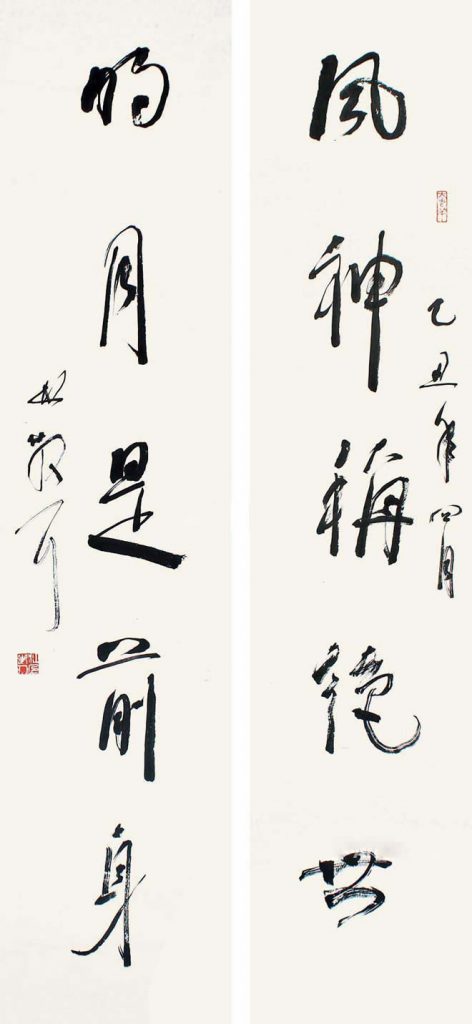 乙丑年四月
風神稱絕世
明月是前身
林散耳